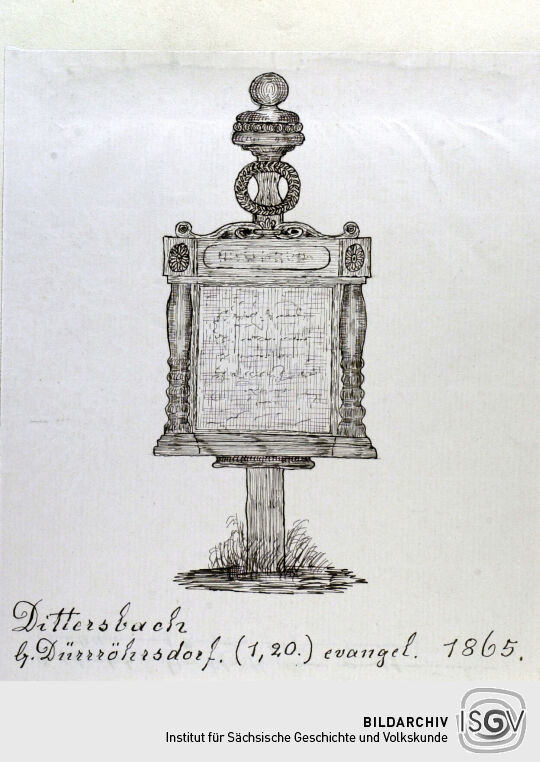 Dittersbach
b. Dürrröhrsdorf. (1,20.) evangel. 1865.
BILDARCHIV
Institut für Sächsische Geschichte und Volkskunde
ISGV